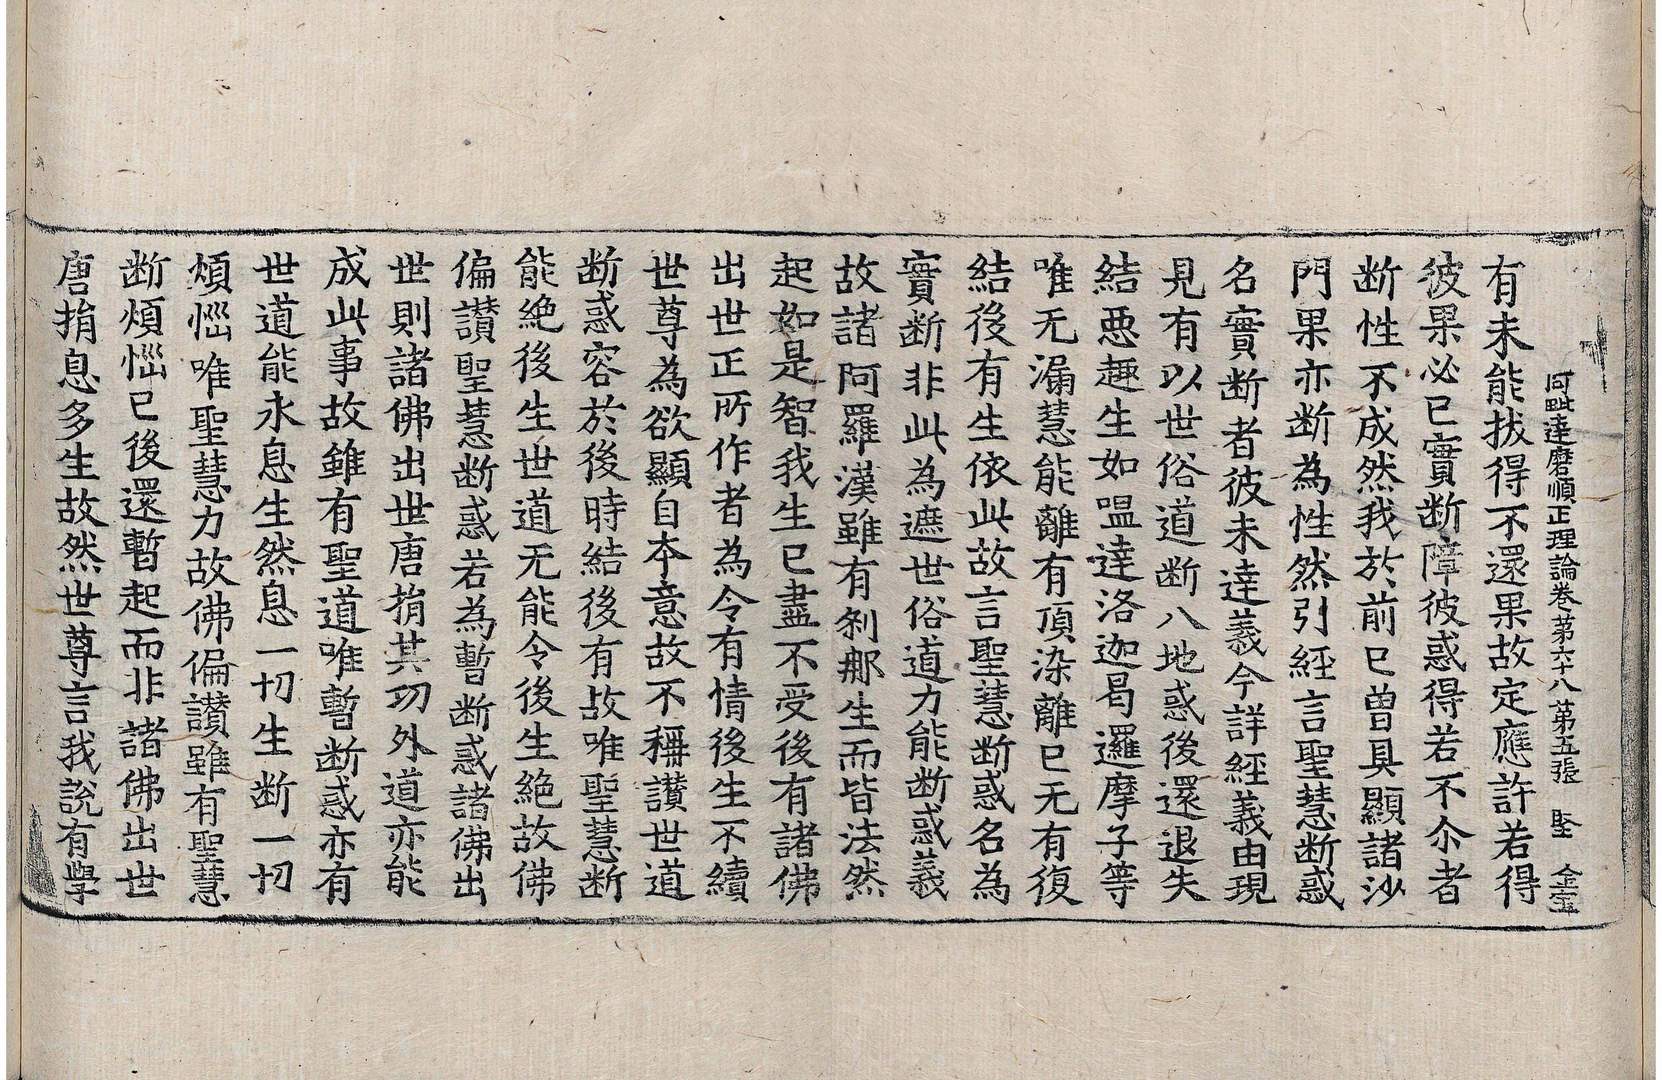 阿毗達磨順正理論卷第六十八第五張 堅 金宝
有未能拔得不還果故定應許若得
彼果必已實断障彼惑得若不尒者
断性不成然我於前已曾具顯諸沙
門果亦断為性然引經言聖慧断惑
名實断者彼未達義今詳經義由現
見有以世俗道断八地惑後還退失
結惡趣生如嗢達洛迦曷邏摩子等
唯无漏慧能離有頂染離已无有復
結後有生依此故言聖慧断惑名為
實断非此為遮世俗道力能断惑義
故諸阿羅漢雖有刹那生而皆法然
起如是智我生已盡不受後有諸佛
出世正所作者為令有情後生不續
世尊為欲顯自本意故不稱讃世道
断惑容於後時結後有故唯聖慧断
能絶後生世道无能令後生絶故佛
偏讃聖慧断惑若為暫断惑諸佛出
世則諸佛出世唐捐其功外道亦能
成此事故雖有聖道唯暫断惑亦有
世道能永息生然息一切生断一切
煩惱唯聖慧力故佛偏讃雖有聖慧
断煩惱已後還暫起而非諸佛出世
唐捐息多生故然世尊言我說有學